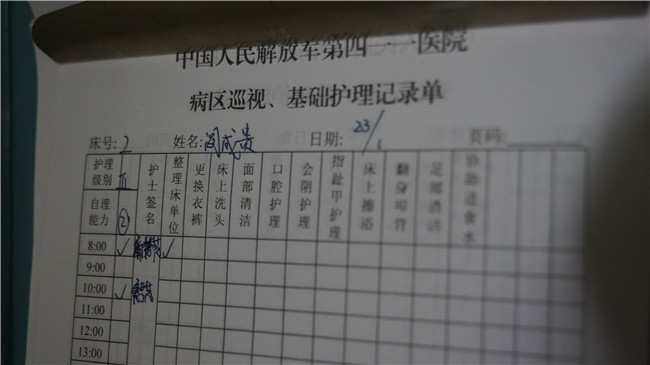 中国人民解放军第四一一医院
病区巡视、基础护理记录单
床号: 2 姓名: 阎成贵 日期: 23/1 页码:
护理级别 III 护士签名 整理床单位 更换衣裤 床上洗头 面部清洁 口腔护理 会阴护理 指趾甲护理 床上擦浴 翻身叩背 足部清洁 协助进食水
自理能力 ②
8:00 ✓ ✓
9:00
10:00 ✓
11:00
12:00
13:00